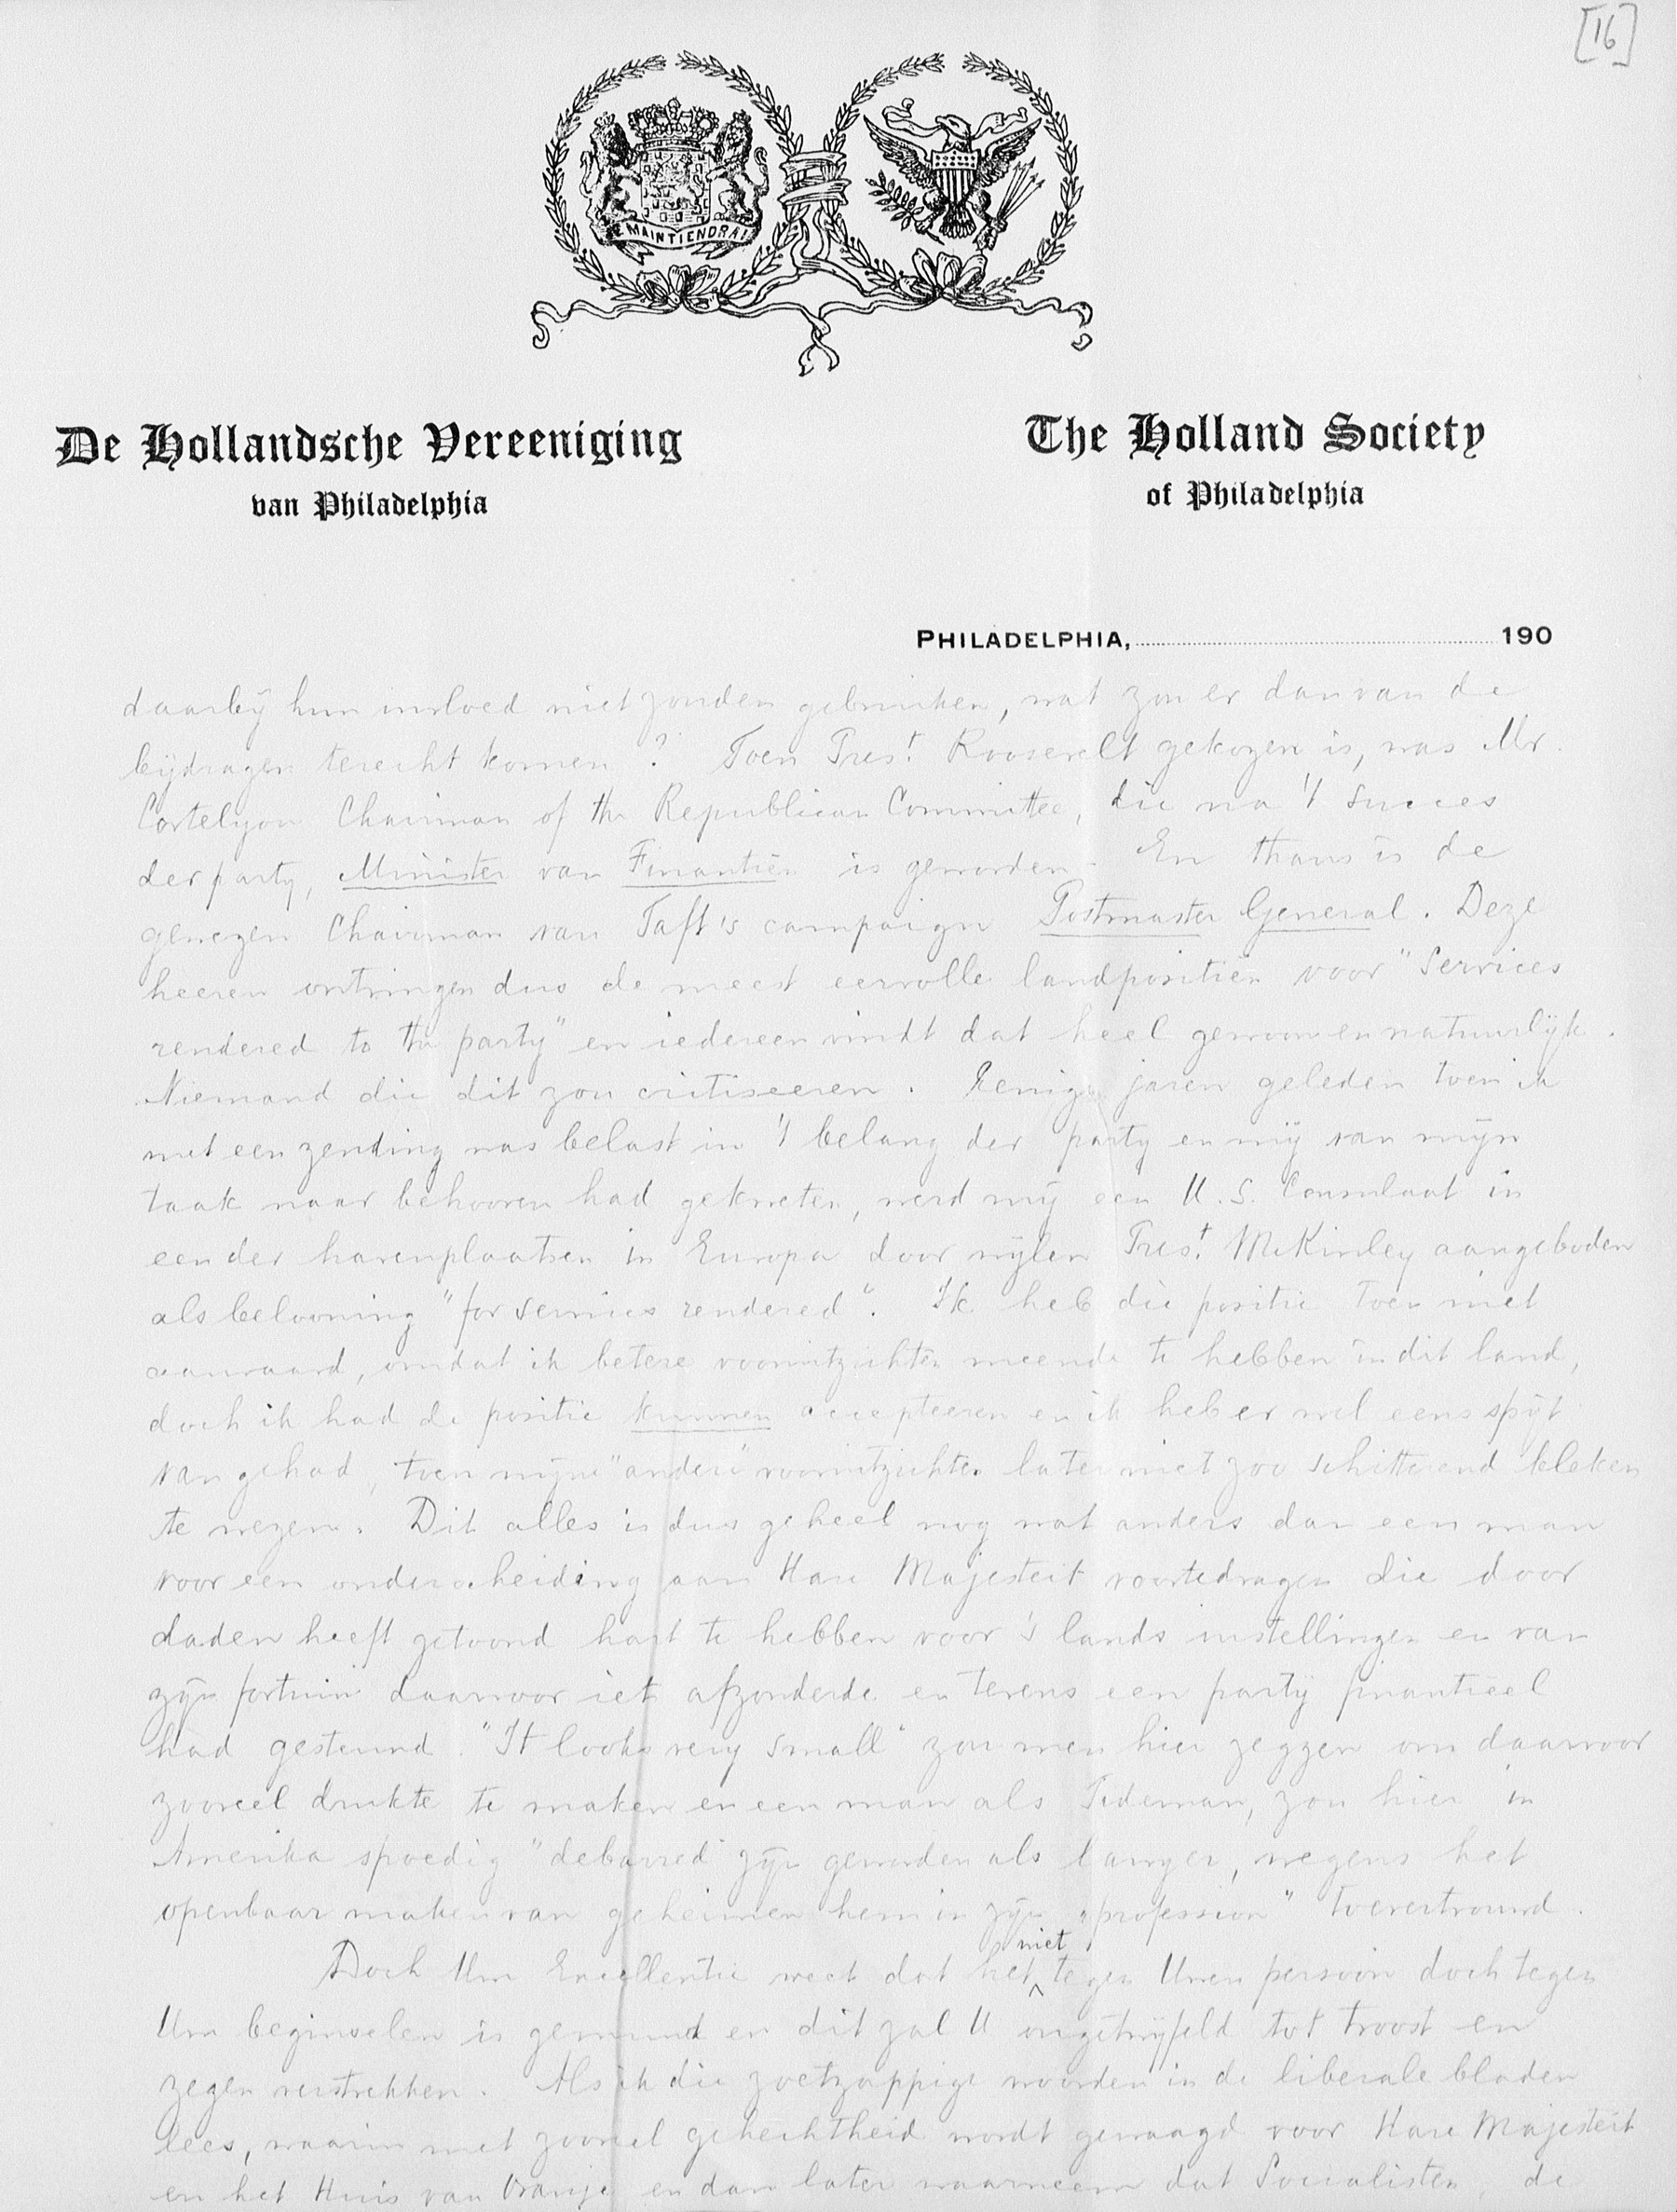 [16]
JE MAINTIENDRAI
De Hollandsche Vereeniging
van Philadelphia
The Holland Society
of Philadelphia
PHILADELPHIA, 190
daarbij hun invloed niet zouden gebruiken, wat zou er dan van de
bijdragen terecht komen? Toen Prest. Roosevelt gekozen is, was Mr.
Cortelyou Chairman of the Republican Committee, die na 't succes
der party, Minister van Finantiën is geworden. En thans is de
gewezen Chairman van Taft's campaign Postmaster General. Deze
heeren ontvingen dus de meest eervolle landpositiën voor "Services
rendered to the party" en iedereen vindt dat heel gewoon en natuurlijk.
Niemand die dit zou critiseeren. Eenige jaren geleden toen ik
met een zending was belast in 't belang der party en mij van mijn
taak naar behooren had gekweten, werd mij een U.S. Consulaat in
een der havenplaatsen in Europa door wijlen Prest. McKinley aangeboden
als belooning "for services rendered". Ik heb die positie toen niet
aanvaard, omdat ik betere vooruitzichten meende te hebben in dit land,
doch ik had de positie kunnen accepteeren en ik heb er wel eens spijt
van gehad, toen mijne "andere" vooruitzichten later niet zoo schitterend bleken
te wezen. Dit alles is dus geheel nog wat anders dan een man
voor een onderscheiding aan Hare Majesteit voortedragen die door
daden heeft getoond hart te hebben voor 's lands instellingen en van
zijn fortuin daarvoor iets afzonderde en tevens een partij finantieel
had gesteund. "It looks very small" zou men hier zeggen om daarvoor
zooveel drukte te maken en een man als Tideman, zou hier in
Amerika spoedig "debarred" zijn geworden als lawyer, wegens het
openbaar maken van geheimen hem in zijn "profession" toevertrouwd.
Doch Uw Excellentie weet dat het niet tegen Uwen persoon doch tegen
Uw beginselen is gemunt en dit zal U ongetwijfeld tot troost en
zegen verstrekken. Als ik die zoetzappige woorden in de liberale bladen
lees, waarin met zooveel gehechtheid wordt gewaagd voor Hare Majesteit
en het Huis van Oranje en dan later waarneem dat Socialisten, de